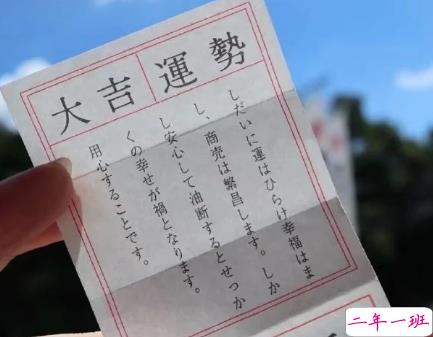 大吉 運勢
しだいに運はひらけ幸福はま
し、商売は繁昌します。しか
し安心して油断するとせっか
くの幸せが禍となります。
用心することです。
二年一班